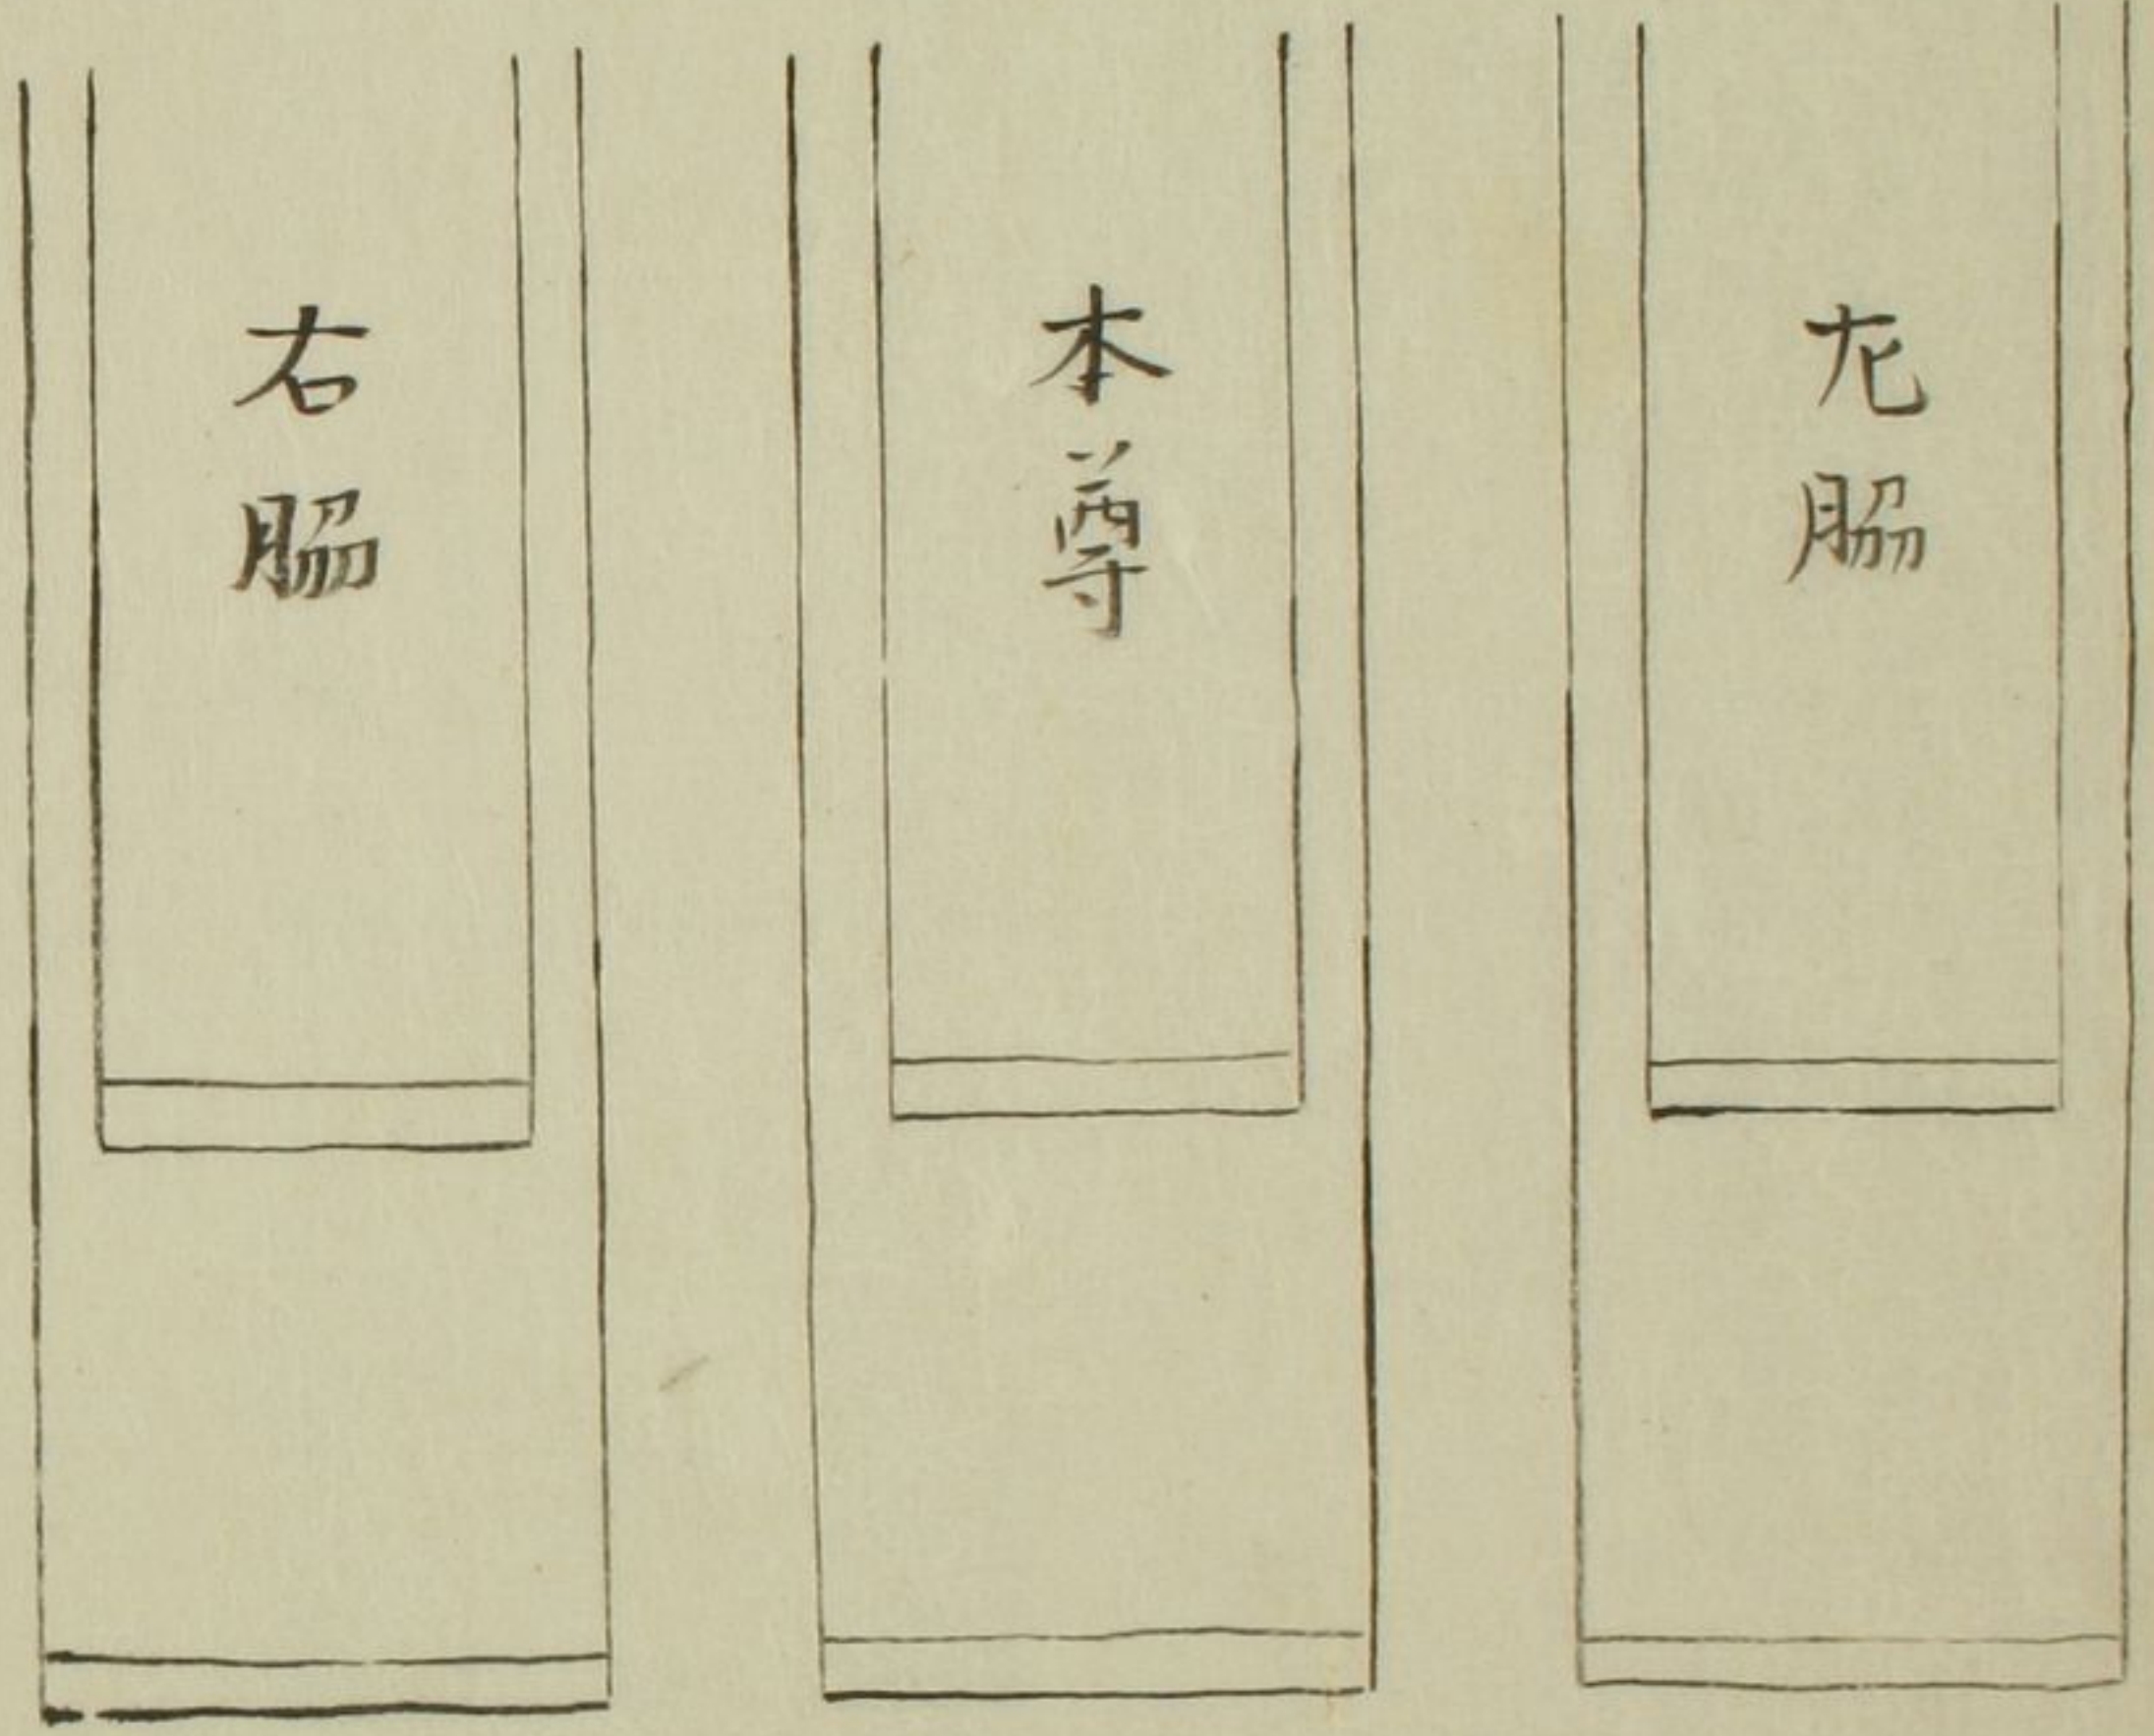 左脇
本尊
右脇